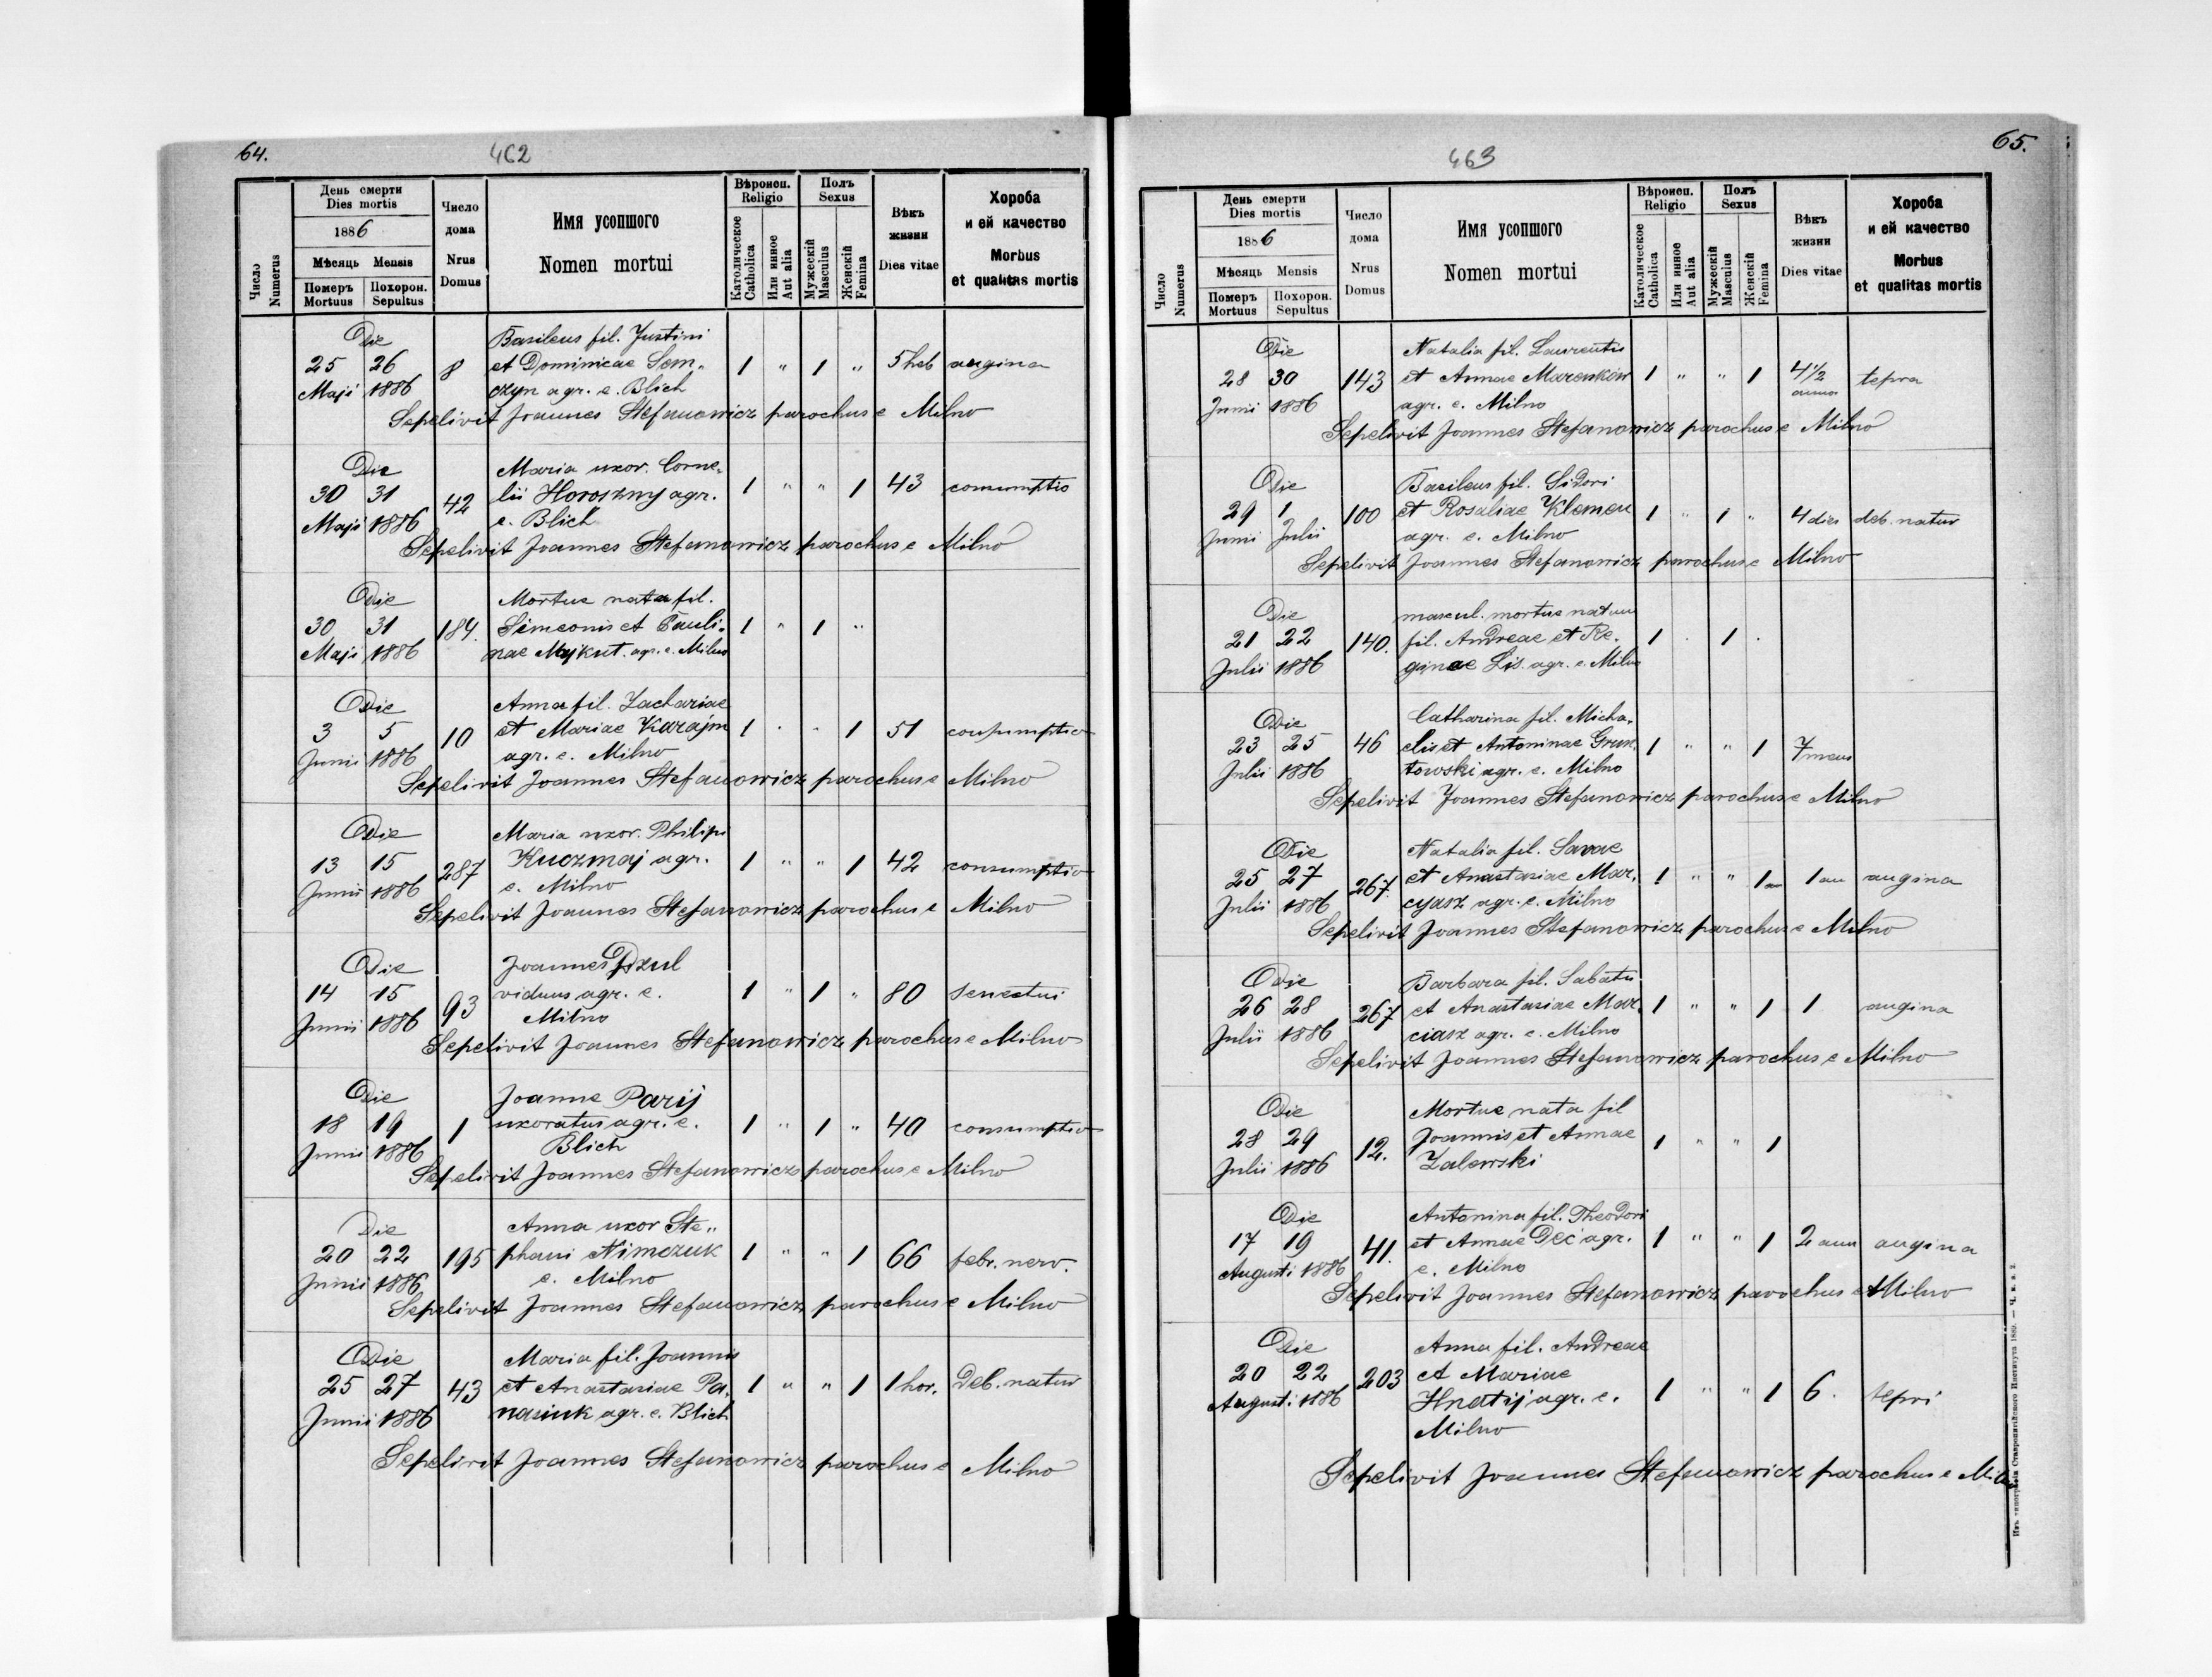 64.
462
Число Numerus
День смерти
Dies mortis
1886
Мѣсяць Mensis
Померъ Mortuus
Похорон. Sepultus
Число дома
Nrus Domus
Имя усопшого
Nomen mortui
Вѣроисп. Religio
Католическое Catholica
Или инное Aut alia
Полъ Sexus
Мужескій Masculus
Женскій Femina
Вѣкъ жизни
Dies vitae
Хороба и ей качество
Morbus et qualitas mortis
Die Basileus fil. Justini
25 26 8 et Dominicae Sem- 1 " 1 " 5 heb angina
Maji 1886 czyn agr. e. Blich
Sepelivit Joannes Stefanowicz parochus e Milno
Die Maria uxor. Corne-
30 31 42 lii Horoszny agr. 1 " " 1 43 consumptio
Maji 1886 e. Blich
Sepelivit Joannes Stefanowicz parochus e Milno
Die Mortue nata fil.
30 31 184. Simeonis et Pauli- 1 " 1 "
Maji 1886 nae Majkut. agr. e. Milno
Die Anna fil. Zachariae
3 5 10 et Mariae Karajm 1 " " 1 51 consumptio
Junii 1886 agr. e. Milno
Sepelivit Joannes Stefanowicz parochus e Milno
Die Maria uxor. Philipi
13 15 287 Kuczmaj agr. 1 " " 1 42 consumptio
Junii 1886 e. Milno
Sepelivit Joannes Stefanowicz parochus e Milno
Die Joannes Dzul
14 15 93 viduus agr. e. 1 " 1 " 80 senectui
Junii 1886 Milno
Sepelivit Joannes Stefanowicz parochus e Milno
Die Joanne Parij
18 19 1 uxoratus agr. e. 1 " 1 " 40 consumptio
Junii 1886 Blich
Sepelivit Joannes Stefanowicz parochus e Milno
Die Anna uxor Ste-
20 22 195 phani Nimczuk 1 " " 1 66 febr. nerv.
Junii 1886 e. Milno
Sepelivit Joannes Stefanowicz parochus e Milno
Die Maria fil. Joannis
25 27 43 et Anastasiae Pa- 1 " " 1 1 hor. Deb. natur
Junii 1886 nasiuk agr. e. Blich
Sepelivit Joannes Stefanowicz parochus e Milno
65.
463
Число Numerus
День смерти
Dies mortis
1886
Мѣсяць Mensis
Померъ Mortuus
Похорон. Sepultus
Число дома
Nrus Domus
Имя усопшого
Nomen mortui
Вѣроисп. Religio
Католическое Catholica
Или инное Aut alia
Полъ Sexus
Мужескій Masculus
Женскій Femina
Вѣкъ жизни
Dies vitae
Хороба и ей качество
Morbus et qualitas mortis
Die Natalia fil. Laurentii
28 30 143 et Annae Marenków 1 " " 1 4 1/2 annos tepra
Junii 1886 agr. e. Milno
Sepelivit Joannes Stefanowicz parochus e Milno
Die Basileus fil. Sidori
29 1 100 et Rosaliae Klemen 1 " 1 " 4 dies deb. natur
Junii Julii agr. e. Milno
Sepelivit Joannes Stefanowicz parochus e Milno
Die mascul. mortue natum
21 22 140. fil. Andreae et Re- 1 . 1 .
Julii 1886 ginae Lis. agr. e. Milno
Die Catharina fil. Micha-
23 25 46 elis et Antoninae Grun- 1 " " 1 7 mens
Julii 1886 towski agr. e. Milno
Sepelivit Joannes Stefanowicz parochus e Milno
Die Natalia fil. Savae
25 27 267. et Anastasiae Mar- 1 " " 1 an 1 an angina
Julii 1886 cyasz agr. e. Milno
Sepelivit Joannes Stefanowicz parochus e Milno
Die Barbara fil. Sabatii
26 28 267 et Anastasiae Mar- 1 " " 1 1 angina
Julii 1886 ciasz agr. e. Milno
Sepelivit Joannes Stefanowicz parochus e Milno
Die Mortue nata fil
28 29 12. Joannis et Annae 1 " " 1
Julii 1886 Zalewski
Die Antonina fil. Theodori
17 19 41. et Annae Déć agr. 1 " " 1 2 ann angina
Augusti 1886 e. Milno
Sepelivit Joannes Stefanowicz parochus e Milno
Die Anna fil. Andreae
20 22 203 et Mariae
Augusti 1886 Hnatij agr. e. 1 " " 1 6. tepri
Milno
Sepelivit Joannes Stefanowicz parochus e Milno
Изъ типографіи Ставропигійского Института 1882. — Ч. в. а 2.